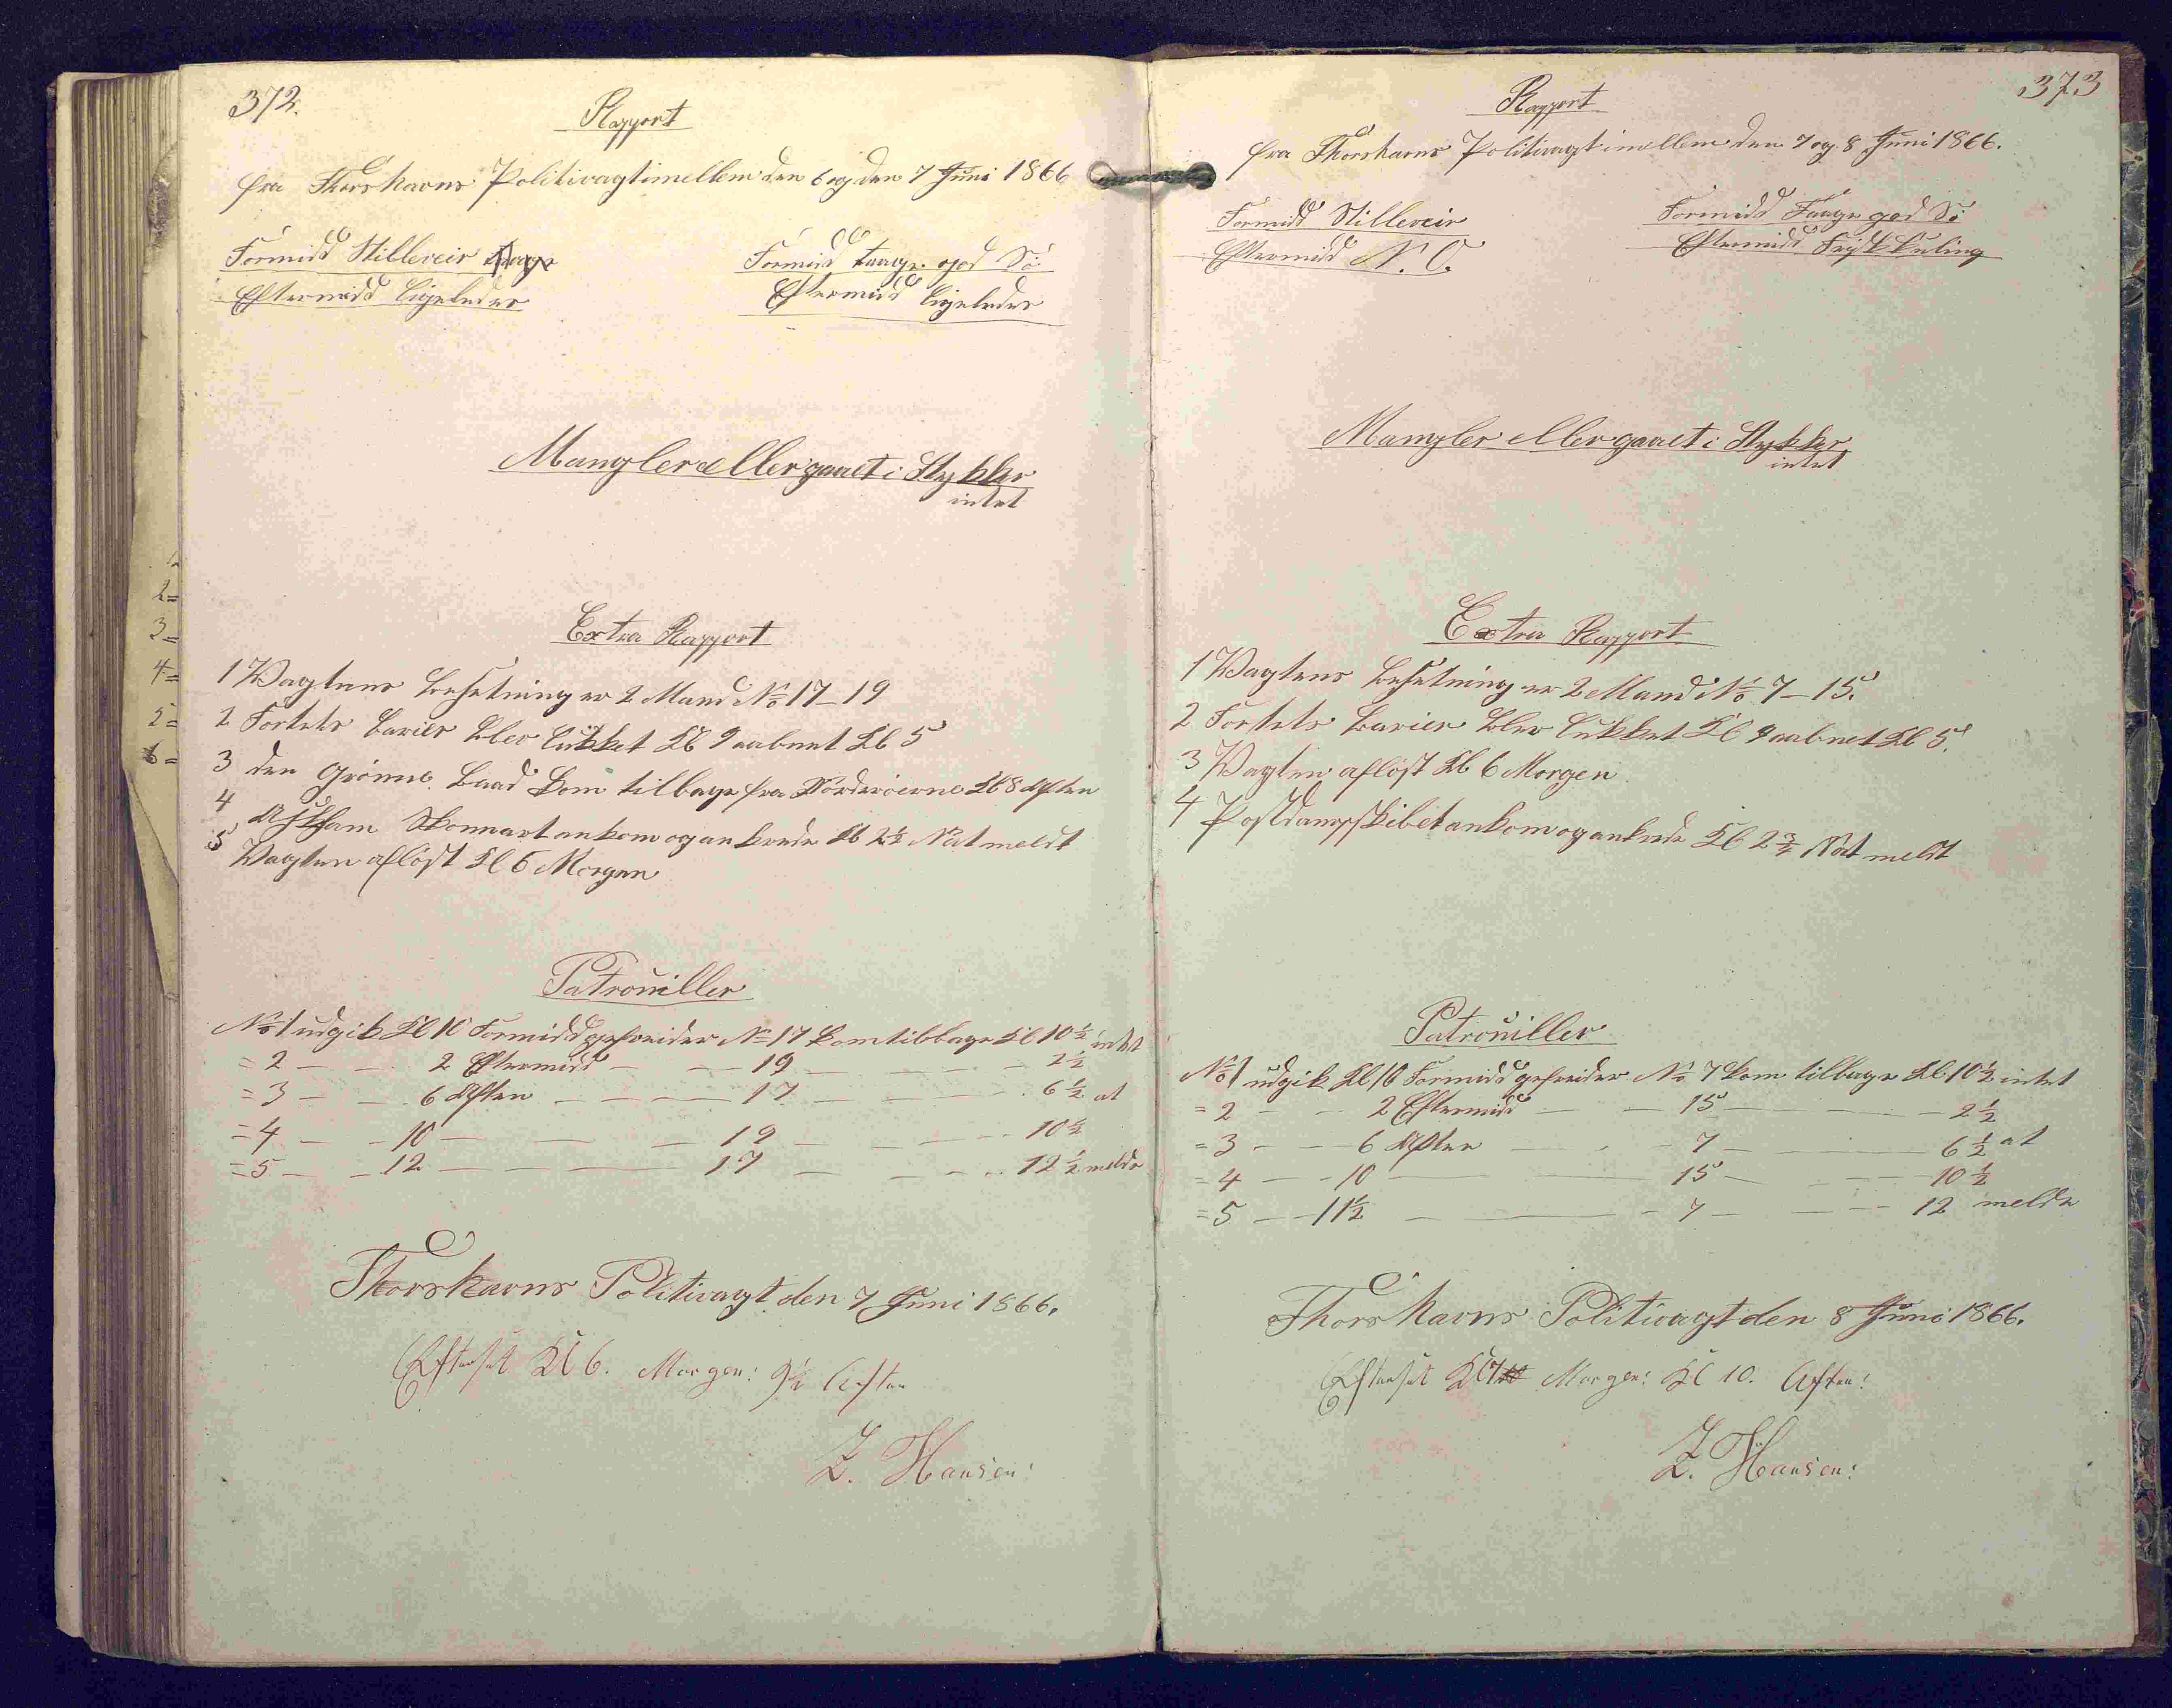 372.
Rapport
fra Thorshavns Politivagt imellem den 6 og den 7 Juni 1866
Formidd Stilleveir
Formidd taage god Sö
Eftermidd ligeledes
Eftermidd ligeledes
Mangler eller gaaet i Stykker
intet
Extra Rapport
1 Vagtens besetning er 2 Mand No 17-19
2 Fortets barier blev lukket Kl 9 aabnet Kl 5
3 den Grönne Baad kom tilbage fra Norderöerne Kl 8 Aften
4 Skonnart ankom og ankrede Kl 2½ Nat meldt
5 Vagten aflöst Kl 6 Morgen
Patrouiller
No 1 udgik Kl 10 Formidd gefreider No 17 kom tilbage Kl 10½ intet
= 2 — — 2 Eftermidd — — 19 — — — 2½
= 3 — — 6 Aften — — — 17 — — — 6½ at
= 4 — — 10 — — — 19 — — — 10½
= 5 — — 12 — — — 17 — — — 12½ melde
Thorshavns Politivagt den 7 Juni 1866.
Efterset Kl 6. Morgen: 9½ Aften
Z. Hansen:
2=
3=
4=
5=
6=
373
Rapport
fra Thorshavns Politivagt imellem den 7 og 8 Juni 1866.
Formidd Stilleveir
Formidd Taage god Sö
Eftermidd N. O.
Eftermidd Frisk Kuling
Mangler eller gaaet i Stykker
intet
Extra Rapport
1 Vagtens besetning er 2 Mand No 7-15.
2 Fortets barier blev lukket Kl 9 aabnet Kl 5.
3 Vagten aflöst Kl 6 Morgen
4 Postdampskibet ankom og ankrede Kl 2¾ Nat meldt
Patrouiller
No 1 udgik Kl 10 Formidd gefreider No 7 kom tilbage Kl 10½ intet
= 2 — — 2 Eftermidd — — 15 — — — 2½
= 3 — — 6 Aften — — — 7 — — — 6½ at
= 4 — — 10 — — — 15 — — — 10½
= 5 — — 11½ — — — 7 — — — 12 melde
Thorshavns Politivagt den 8 Juni 1866.
Efterset Kl 7 Morgen: Kl 10. Aften:
Z. Hansen: